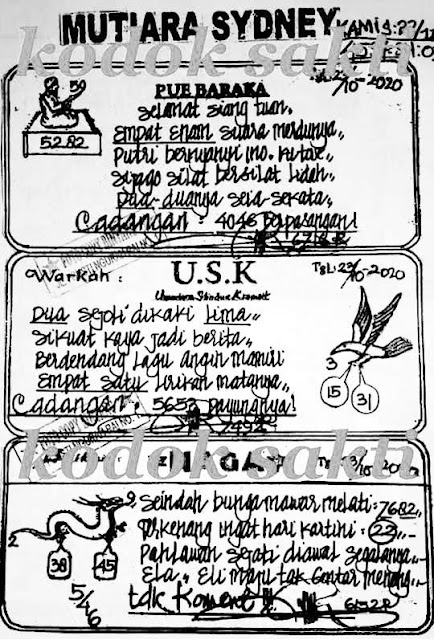 MUTIARA SYDNEY
KAMIS:
kodok sakti
PUE BARAKA
/10-2020
50
52.82
Selamat siang tuan,
Empat Enam suara merdunya,,
Putri bernyanyi
Si jago silat bersilat lidah,
Dua-duanya seia-sekata,
Cadangan: 4046 berpasangan!
U.S.K
Warkah:
Tgl: 23/10-2020
Dua sejoli dikaki lima,,
Sikuat kaya jadi berita,,
Berdendang lagu angin mamiri
Empat satu lirikan matanya,,
Cadangan: 5653 payungnya!
7492
3
15
31
kodok sakti
NAGA
Seindah bunga mawar melati: 7682
ingat hari kartini: 22
Pahlawan sejati diawal segalanya
Ela,, Eli maju tak Gentar menang
tdk Koment!!
2
2
38
45
5/46